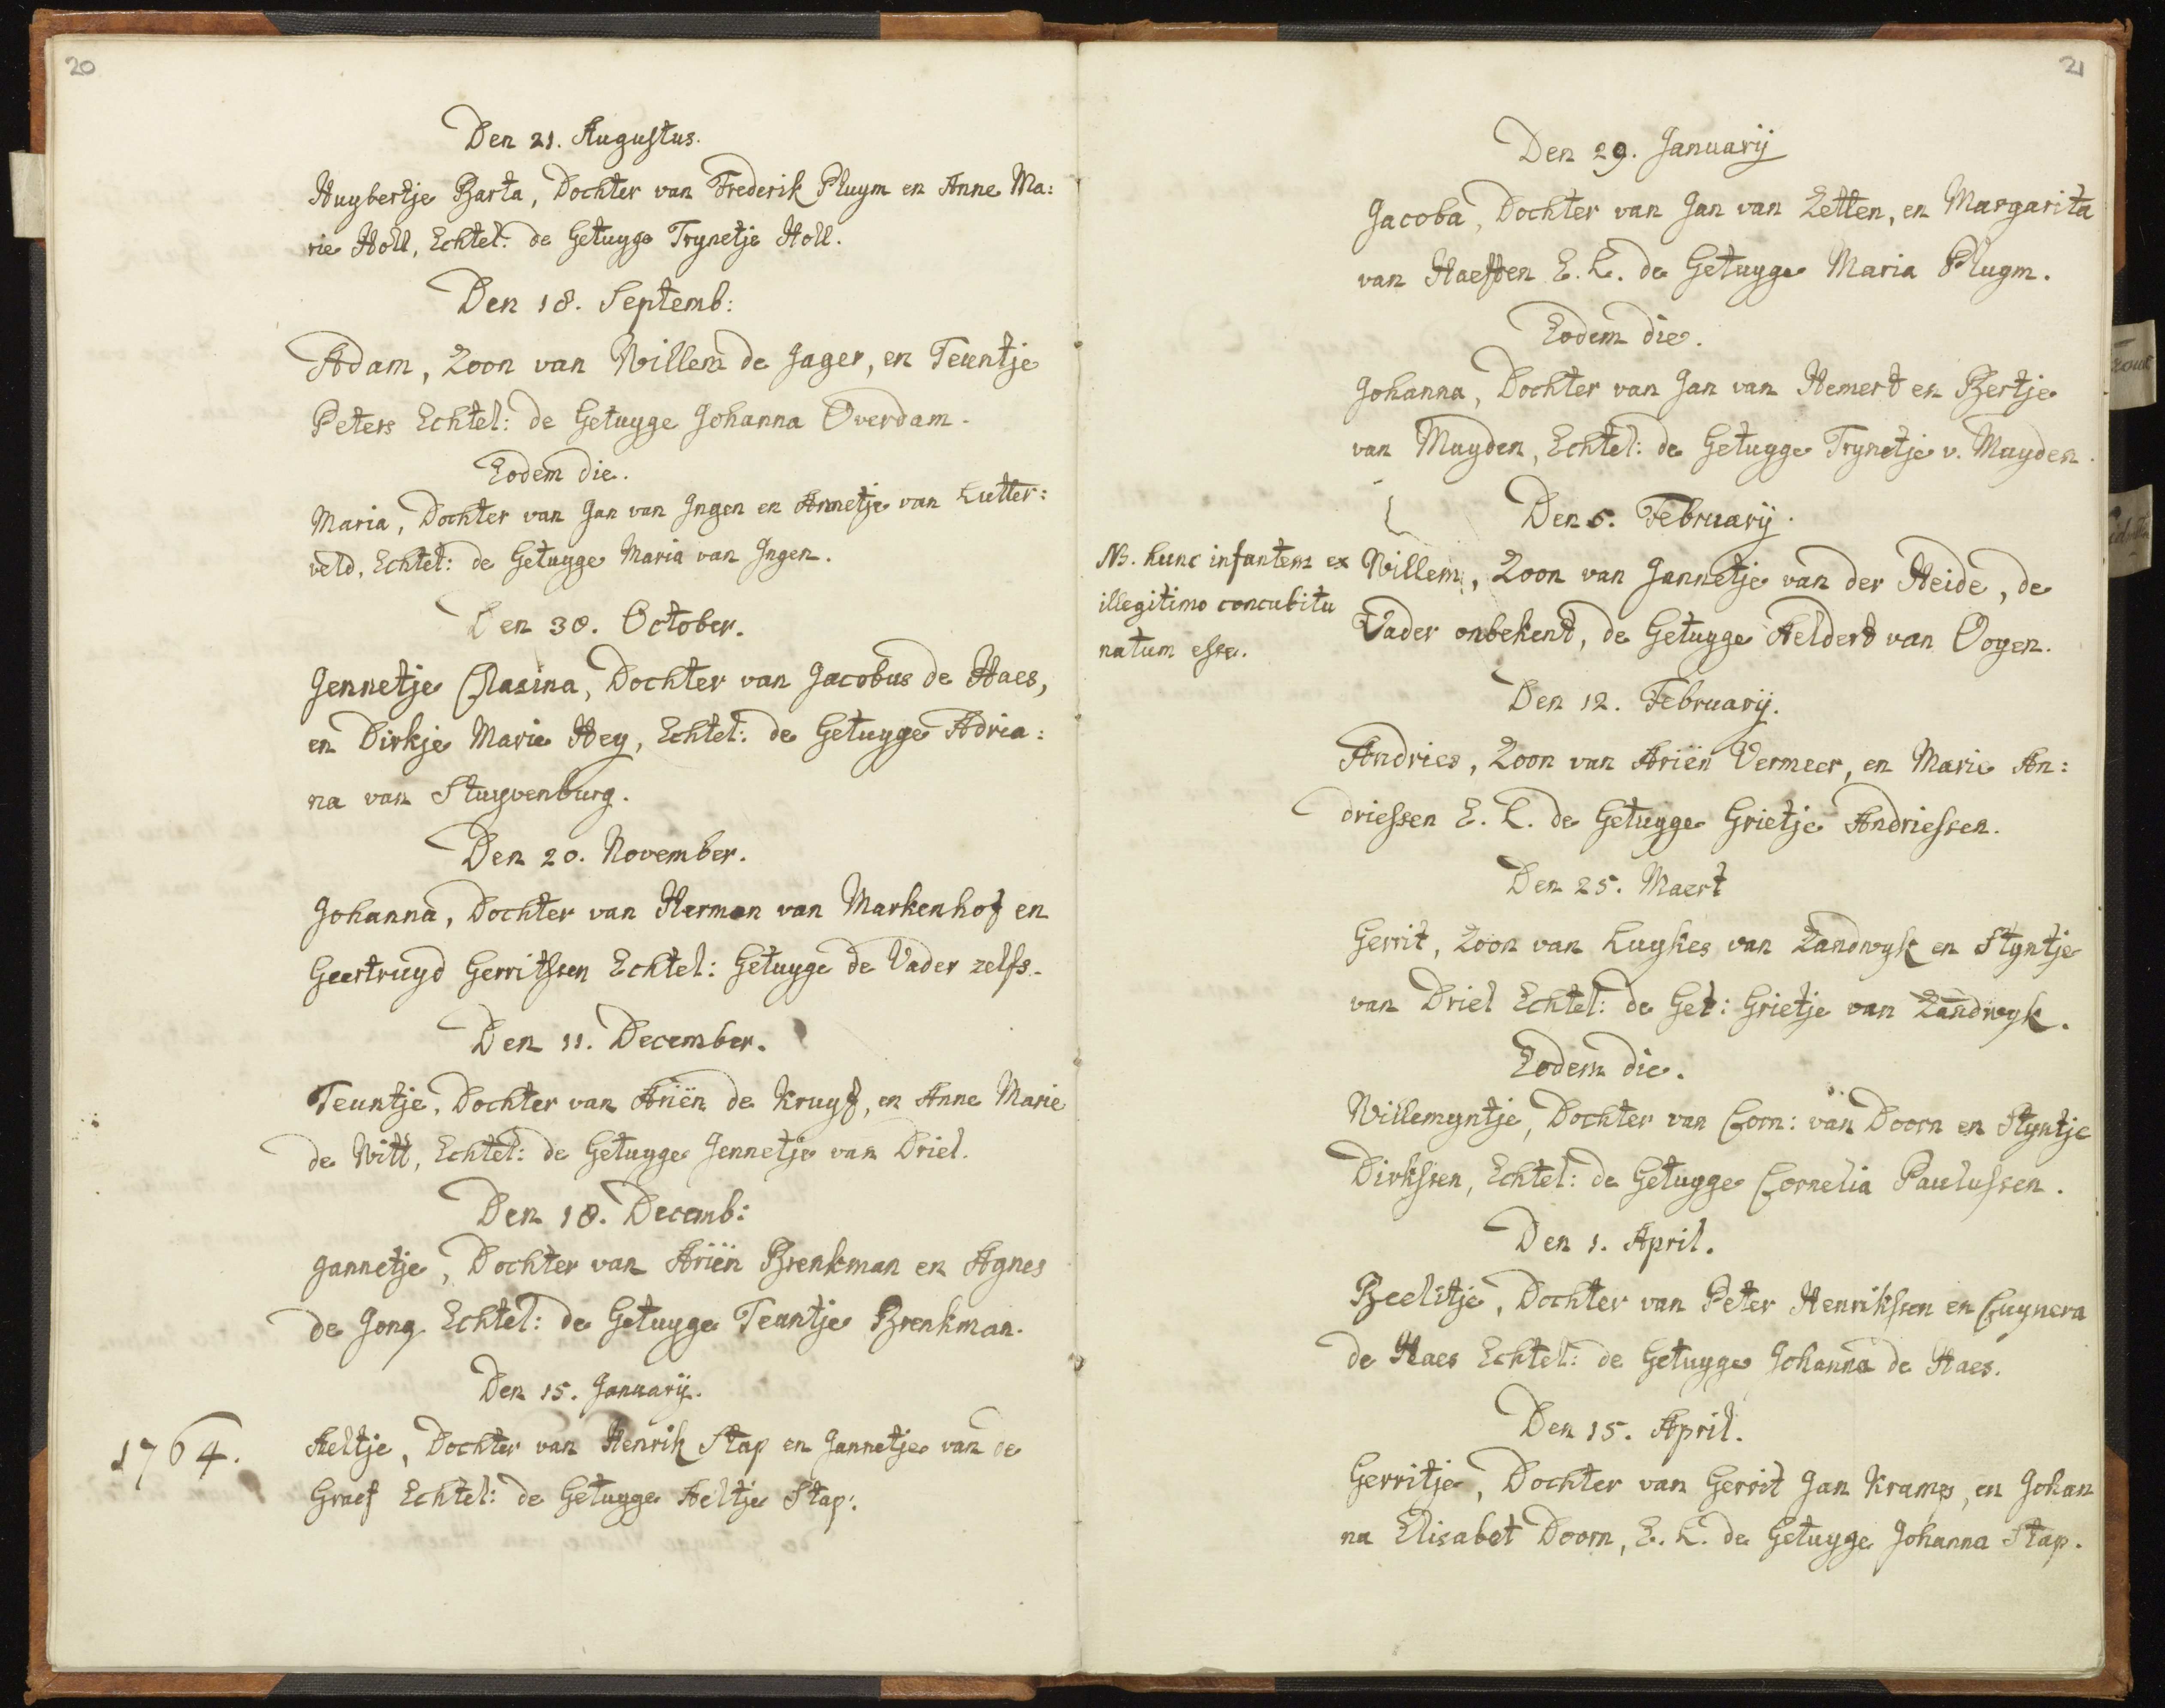 20
Den 21. Augustus.
Huybertje Barta, Dochter van Frederik Pluym en Anne Ma:
rie Holl, Echtel: de Getuyge Trynetje Holl.
Den 18. Septemb:
Adam, Zoon van Willem de Jager, en Teuntje
Peters Echtel: de Getuyge Johanna Overdam.
Eodem die.
Maria, Dochter van Jan van Ingen en Annetje van Lutter:
veld, Echtel: de Getuyge Maria van Ingen.
Den 30. October.
Jennetje Clasina, Dochter van Jacobus de Haes,
en Dirkje Marie Hey, Echtel: de Getuyge Adria:
na van Stuyvenburg.
Den 20. November.
Johanna, Dochter van Herman van Markenhof en
Geertruyd Gerritssen Echtel: Getuyge de Vader zelfs.
Den 11. December.
Teuntje, Dochter van Ariën de Kruyf, en Anne Marie
de Witt, Echtel: de Getuyge Jennetje van Driel.
Den 18. Decemb:
Jannetje, Dochter van Ariën Brenkman en Agnes
de Jong Echtel: de Getuyge Teuntje Brenkman.
Den 15. Januarij.
1764.
Aeltje, Dochter van Henrik Stap en Jannetje van de
Graef Echtel: de Getuyge Aeltje Stap.
21
Den 29. Januarij
Jacoba, Dochter van Jan van Zetten, en Margarita
van Haeften E. L. de Getuyge Maria Pluym.
Eodem die.
Johanna, Dochter van Jan van Hemert en Bertje
van Muyden, Echtel: de Getuyge Trynetje v. Muyden.
Den 5. Februarij.
NB. hunc infantem ex
illegitimo concubitu
natum esse.
Willem, Zoon van Jannetje van der Heide, de
Vader onbekent, de Getuyge Aeldert van Ooyen.
Den 12. Februarij.
Andries, Zoon van Ariën Vermeer, en Marie An:
driessen E. L. de Getuyge Grietje Andriessen.
Den 25. Maert
Gerrit, Zoon van Luykes van Zandwyk en Styntje
van Driel Echtel: de Get: Grietje van Zandwyk.
Eodem die.
Willemyntje, Dochter van Corn: van Doorn en Styntje
Dirkssen, Echtel: de Getuyge Cornelia Paulussen.
Den 1. April.
Beelitje, Dochter van Peter Henrikssen en Cuynera
de Haes Echtel: de Getuyge Johanna de Haes.
Den 15. April.
Gerritje, Dochter van Gerrit Jan Kramp, en Johan
na Elisabet Doorn, E. L. de Getuyge Johanna Stap.